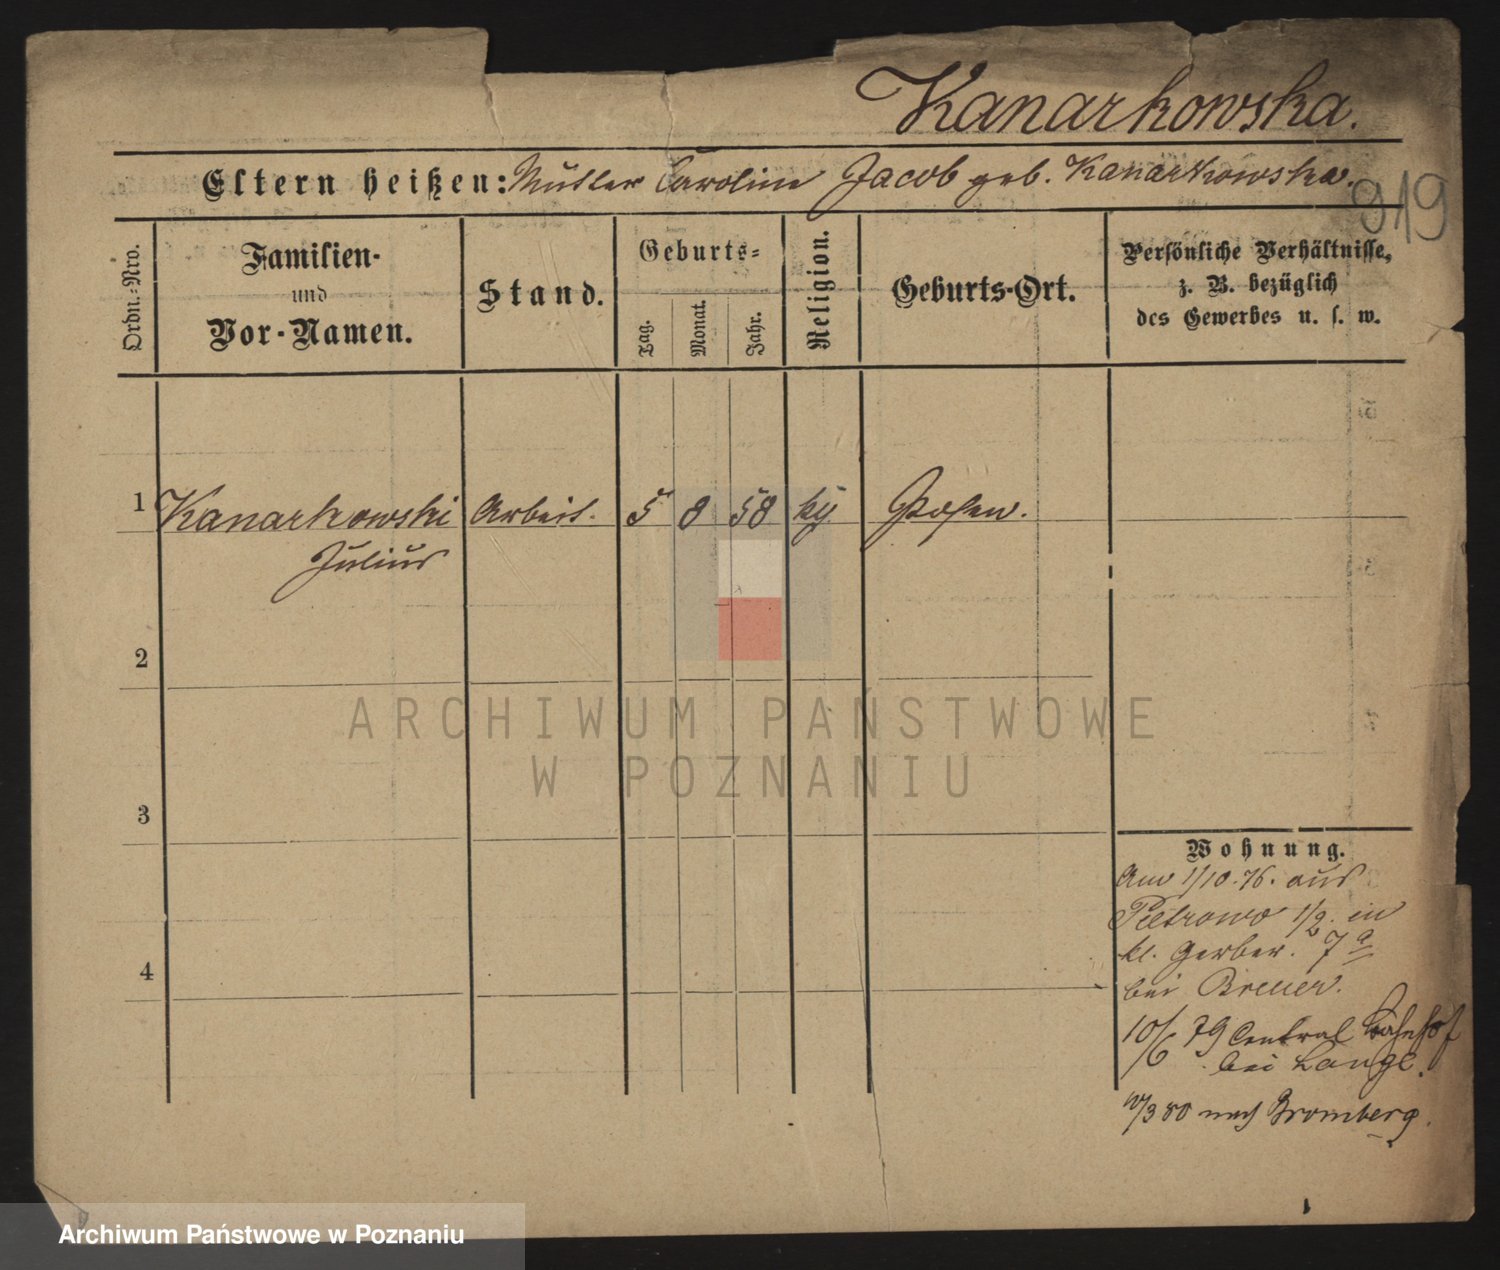 Kanarkowska.
Eltern heißen: Mutter Caroline Jacob geb. Kanarkowska.
919
Ordn.-Nro.
Familien-
und
Vor-Namen.
Stand.
Geburts-
Tag.
Monat.
Jahr.
Religion.
Geburts-Ort.
Persönliche Verhältnisse,
z. B. bezüglich
des Gewerbes u. s. w.
1 Kanarkowski Arbeit. 5 8 58 Posen.
Julius
2
3
4
Wohnung.
Am 1/10. 76. aus
Pietrowo 1/2. in
kl. Gerber. 7 a
bei Breuer.
10/6 79 Central Bahnhof
bei Lange.
10/3 80 nach Bromberg.
ARCHIWUM PAŃSTWOWE
W POZNANIU
Archiwum Państwowe w Poznaniu